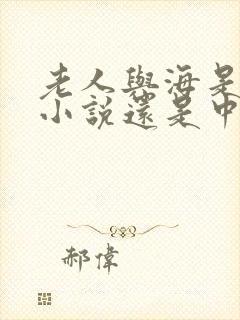 老人與海是
小說還是中
郝偉